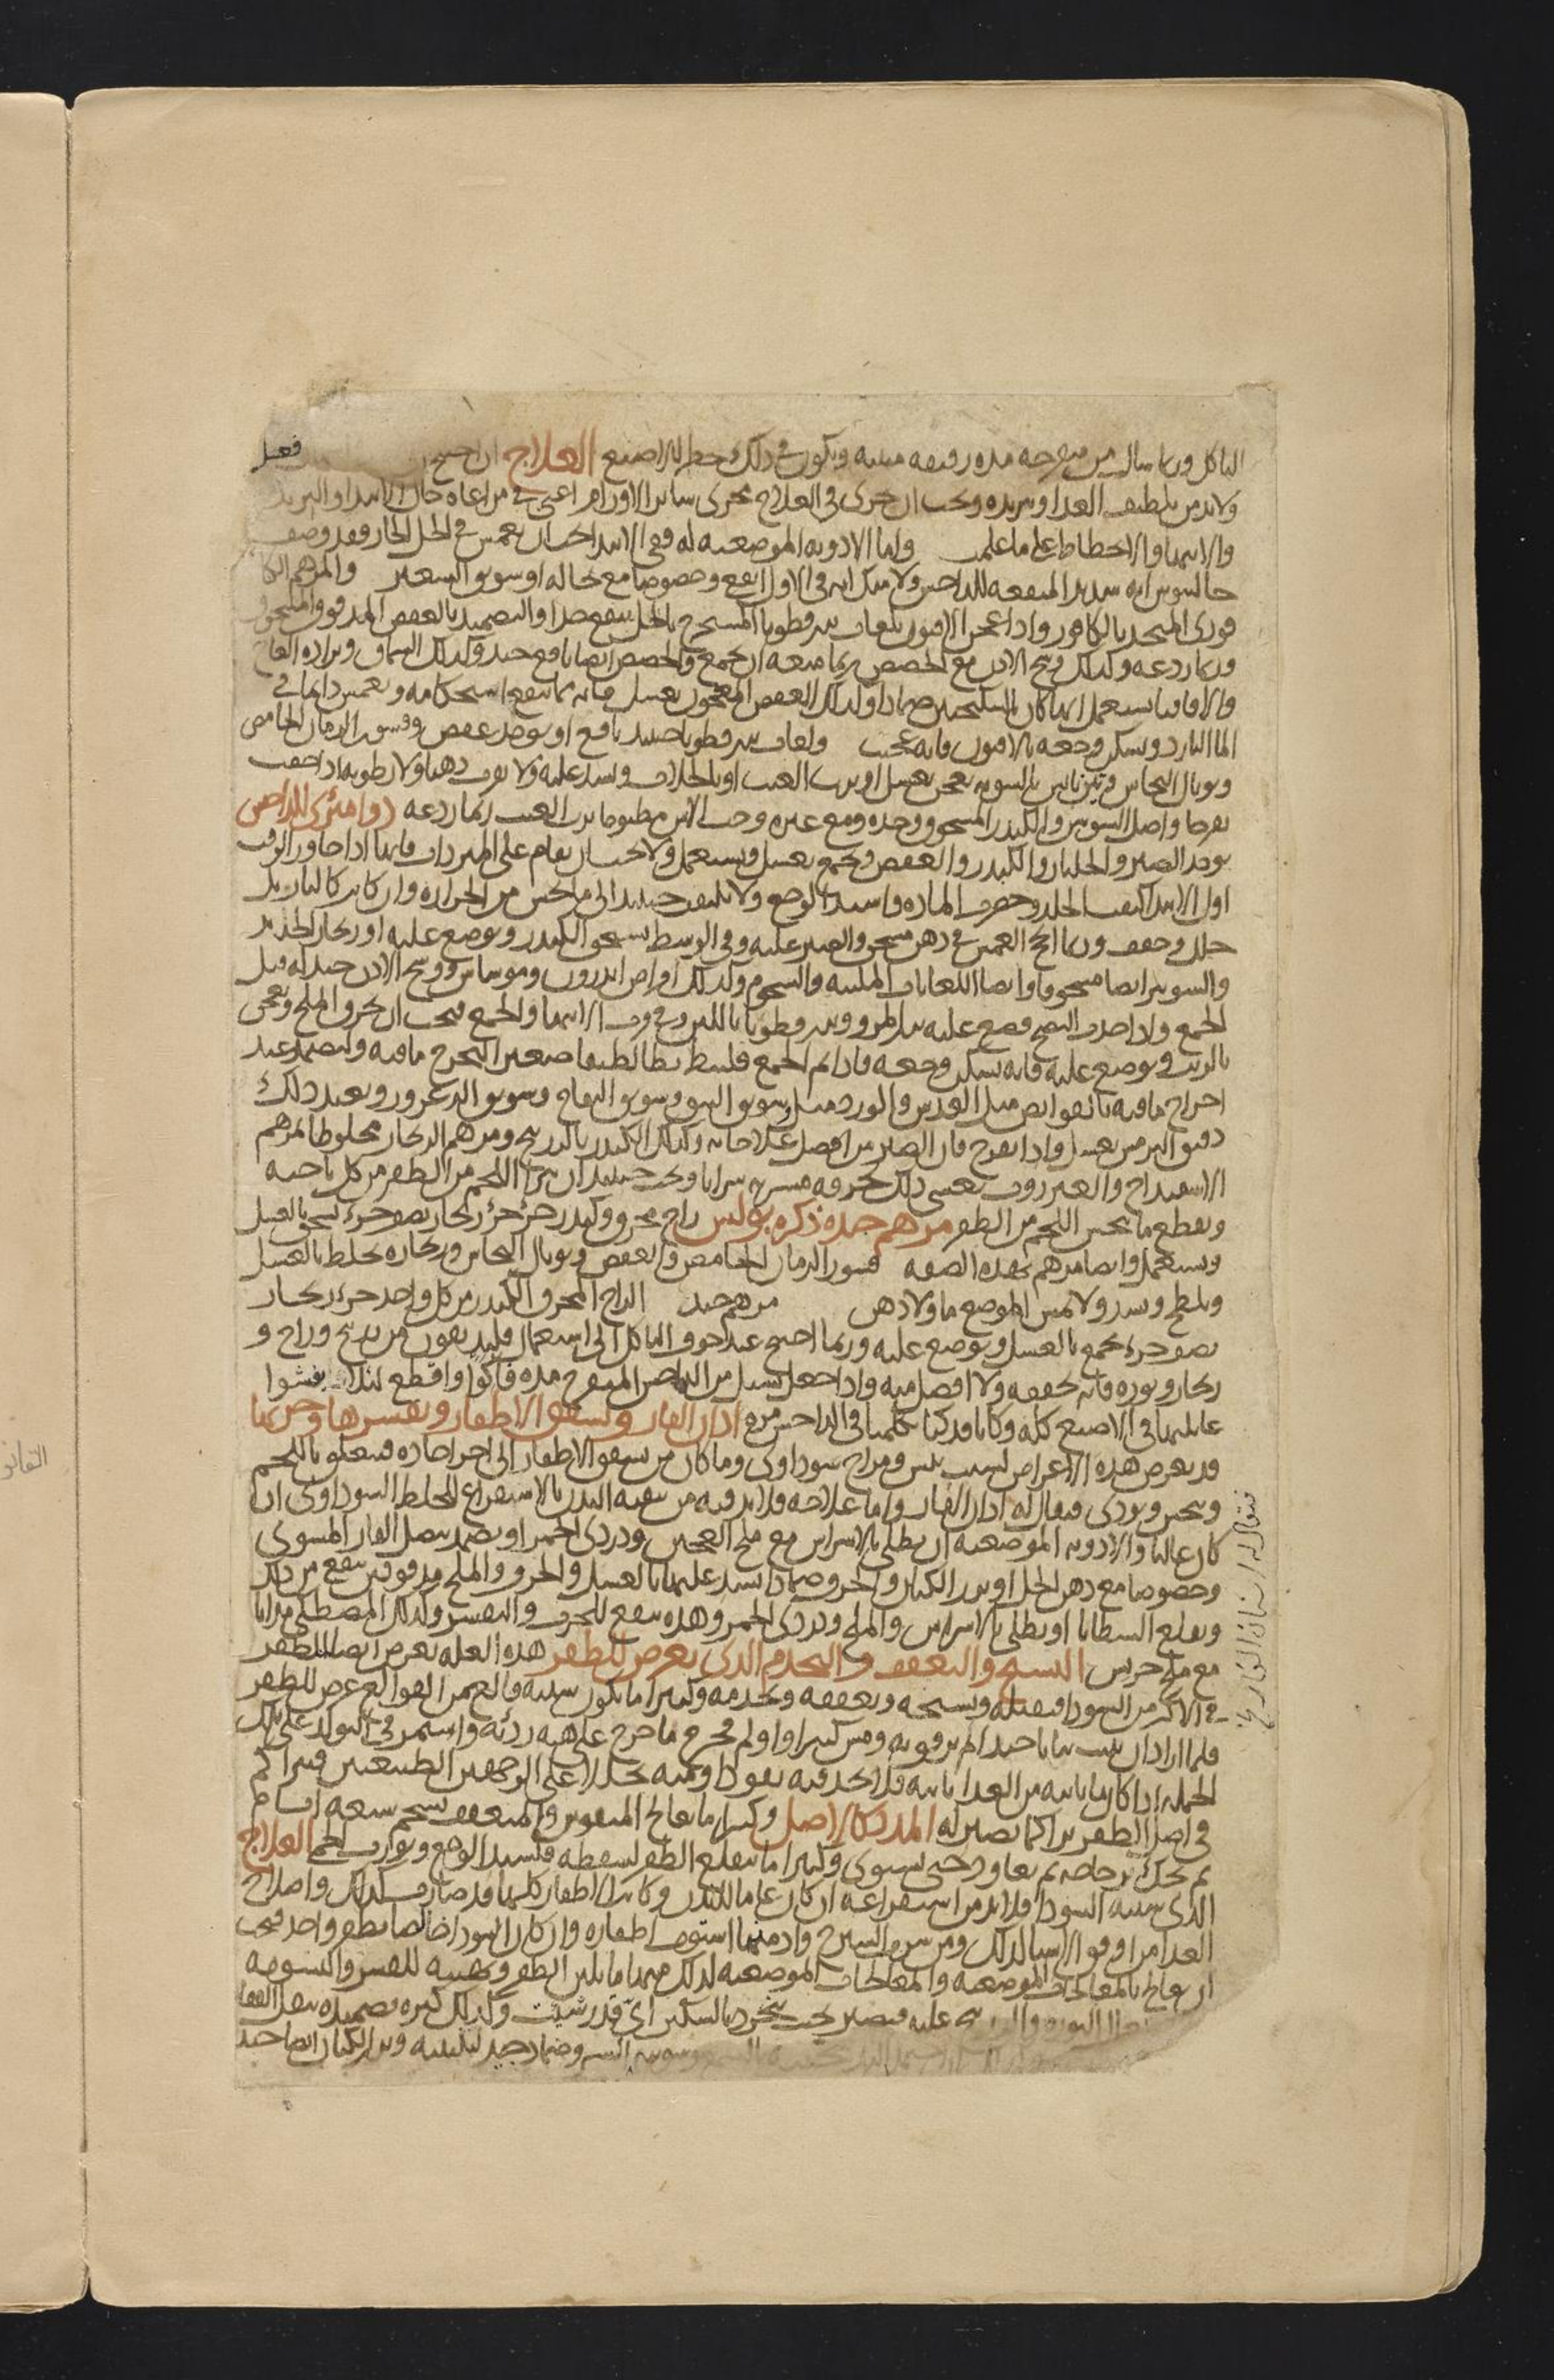 التاكل وربما سال من متقرحه مدة رقيقة منتنه ويكون في ذلك خطر للاصبع العلاج ان احتيج
ولابد من تلطيف الغذا وتبريده ويجب ان يجرى في العلاج مجرى ساير الاورام اعنى في مراعاة حال الابتدا والتزيد
والانتها والانحطاط على ما علمت واما الادوية الموضعية له ففي الابتدا يجب ان يغمس في الخل الحار فقد وصف
جالينوس انه شديد المنفعة للداحس ولا شك انه في الاول انفع وخصوصا مع نخاله او سويق الشعير والمرهم الكا
فورى المتخذ بالكافور واذا عجن الافيون بلعاب بزرقطونا المستخرج بالخل ينفع جدا والتضميد بالعفص المدقوق المنخول
وربما ردعه وكذلك وسخ الاذن مع الحضض ربما منعه ان يجمع والحضض ايضا نافع جيد وكذلك السماق وبرادة العاج
والاقاقيا يستعمل ايها كان بالسكنجبين ضمادا وكذلك العفص المعجون بعسل فانه مما ينفع استحكامه ويغمس دايما في
الما البارد ويسكن وجعه بالافيون فانه عجيب ولعاب بزرقطونا حينيذ نافع او يوخذ عفص وقشور الرمان الحامض
وتوبال النحاس وتين يابس بالسوية يعجن بعسل او برب العنب او بالجلاب ويشد عليه ولا يقرب دهنا ولا رطوبة اذا خفت
تقرحا واصل السوسن والكندر المسحوق وحده ومع غيره وحب الآس مطبوخا برب العنب ربما ردعه دوا مثرى للداحس
يوخذ الصبر والجلنار والكندر والعفص ويجمع بعسل ويستعمل ولا يجب ان يقام على المبردات فانها اذا جاوز الوقت
اول الابتدا كثفت الجلد وحصرت المادة واشتد الوجع ولا يلتفت حينيذ الى ما يحس من الحرارة وان كانت كالنار بل
حلل وجفف وربما انجح الغمس في دهن مسخن والصبر عليه وفي الوسط يسحق الكندر ويوضع عليه او زنجار الحديد
والشونيز ايضا مسحوقا وايضا اللعابات الملينه والشحوم وكذلك اقراص اندرون وموساس ووسخ الاذن جيد له قبل
الجمع واذا اخذت النضج فضع عليه بزر المرو وبزرقطونا باللبن وفي وقت الانتها والجمع فيجب ان يحرق الملح ويعجن
بالزيت ويوضع عليه فانه يسكن وجعه فاذا تم الجمع فليبط بطا لطيفا صغيرا ليخرج ما فيه وليضمد عند
اخراج ما فيه بالقوابض مثل العدس والورد مثل سويق النبق وسويق التفاح وسويق الزعرور وبعد ذلك
دقيق الترمس بعسل واذا تقرح فان الصبر من افضل علاجاته وكذلك الكندر بالزرنيخ ومرهم الزنجار مخلوطا بمرهم
الاسفيداج والعنزروت يغشى ذلك بخرقه مشربه شرابا ويجب حينيذ ان يبرا اللحم من الظفر من كل ناحيه
ويقطع ما ينخس اللحم من الظفر مرهم جيد ذكره بولس زاج محرق وكندر جزء جزء زنجار نصف جزء يسحق بالعسل
ويستعمل وايضا مرهم بهذه الصفه قشور الرمان الحامض والعفص وتوبال النحاس وزنجاره يخلط بالعسل
ويلطخ ويشد ولا يمس الموضع ما ولا دهن مرهم جيد الزاج المحرق الكندر من كل واحد جزء زنجار
نصف جزء يجمع بالعسل ويوضع عليه وربما احتيج عند خوف التاكل الى استعمال فلدفيون من زرنيخ وزاج و
زنجار ونوره فانه يجففه ولا افضل منه واذا جعل يسيل من الداحس المتقرح مده فاكوا واقطع ليلا يفشوا
غايلتها في الاصبع كله وكنا قد كنا تكلمنا في الداحس مره اذان الفار وتشقق الاظفار وتقشرها وجربها
قد يعرض هذه الاعراض لسبب يبس ومزاج سوداوى وما كان من تشقق الاظفار الى اجزا حاده فيتعلق باللحم
وينخس ويوذى فيقال له اذان الفار واما علاجه فلابد فيه من تنقية البدن بالاستفراغ للخلط السوداوى ان
كان غالبا والادويه الموضعيه ان يطلى بالاسراس مع ملح العجين ودردى الخمر او يضمد ببصل الفار المشوى
وخصوصا مع دهن الحل او بزر الكتان والحرف ضمادا يشد عليها بالعسل والحرف والملح مدقوقين ينفع من ذلك
ويقلع الشظايا او يطلى بالاسراس والملح ودردى الخمر وهذه ينفع للجرب والتقشر وكذلك المصطكى مذابا
مع ملح جريش التشنج والتعقف والتجذم الذى يعرض للظفر هذه العله يعرض ايضا للظفر
في الاكثر من السودا فيفتله ويشنجه ويعقفه ويجذمه وكثيرا ما يكون سببه قالع من القوالع عرض للظفر
فلما اراد ان ينبت نباتا جيدا لم يرفق به ومس كثيرا ولم يخرج ما خرج على هيه رديه واستمر في التولد على تلك
الجمله اذا كان ما ياتيه من الغذا ياتيه فلا يجد فيه نفوذا ومنه تحللا على الوجهين الطبيعيين فيتراكم
في اصل الظفر تراكما يصير له المدد كالاصل وكثيرا ما يعالج المتقوس والمتعقف بشحم سبعه ايام
ثم يحك بزجاجه ثم يعاود حتى يستوى وكثيرا ما ينقلع الظفر لسقطه فليسد الوجع ويوارب اللحم العلاج
الذى سببه السودا فلابد من استفراغه ان كان عاما للبدن وكانت الاظفار كلها قد صارت كذلك واصلاح
الغذا من اوفق الاشيا لذلك ومن شرب السيرج وادمنها استوت اظفاره وان كان السودا خالصا بظفر واحد فيجب
ان يعالج بالمعالجات الموضعيه والمعالجات الموضعيه لذلك منها ما يلين الظفر ويهييه للقشر والتسويه
عليه فيصير بحيث ينجرد بالسكين اي قدر شئت وكذلك كثره تضميده
ضماد جيد لتليينه وبزر الكتان ايضا جيد